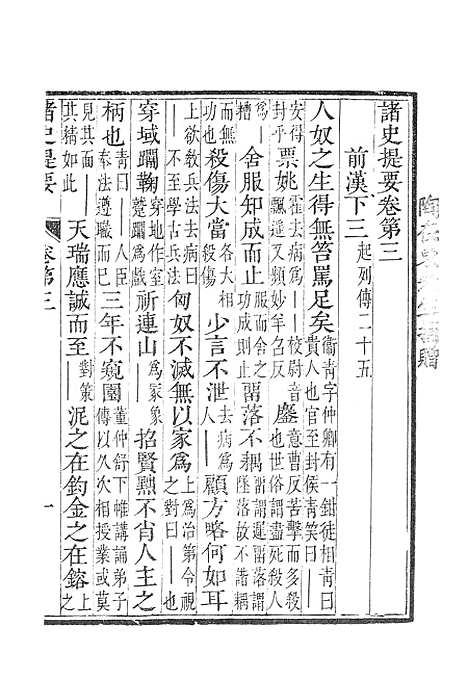 諸史提要卷第三
前漢下三起列傳二十五
人奴之生得無笞罵足矣衞青字仲卿有一鉗徒相青曰貴人也官至封侯青笑曰——
安得——封乎票姚霍去病爲——校尉音飄遙又頻妙羊召反鏖意曹反苦擊而多殺也世俗謂盡死殺人
爲——糟舍服知成而止服而舍之功成則止留落不耦謂遲留謂墜落故不諧耦
而無——也殺傷大當殺傷少言不泄去病爲人——顧方略何如耳
上欲敎去病兵法曰——至不學古兵法匈奴不滅無以家爲上爲治第令視之對曰——也
穿域蹋鞠穿地作室蹵蹋爲戲祈連山爲冢象——招賢黜不肖人主之
柄也青曰——人臣奉法遵職而已三年不窺園董仲舒下帷講誦弟子傳以久次相授業或莫
見其面——其精如此天瑞應誠而至對策——泥之在鈞金之在鎔上
諸史提要
卷第三
一